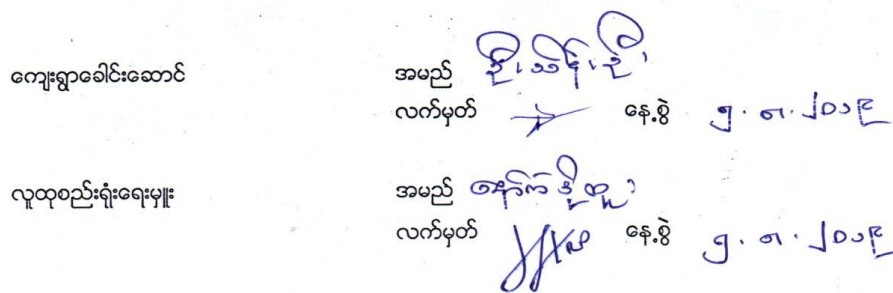 ကျေးရွာခေါင်းဆောင် အမည် ဦးသိန်းဦး
လက်မှတ် နေ့စွဲ ၅.၈.၂၀၁၉
လူထုစည်းရုံးရေးမှူး အမည် နော်က
လက်မှတ် နေ့စွဲ ၅.၈.၂၀၁၉